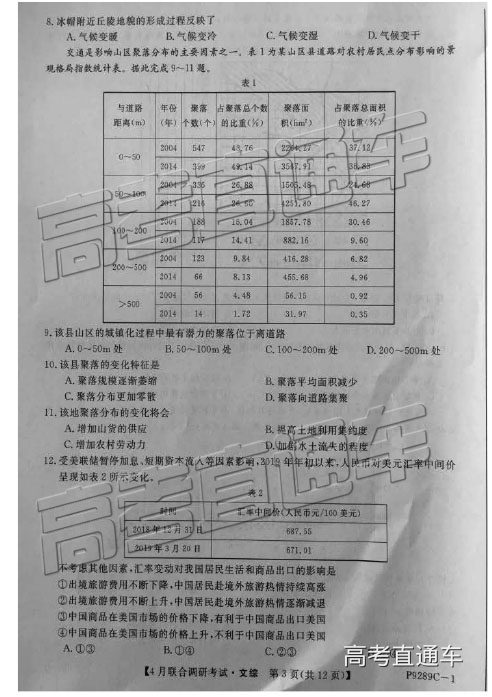 8.冰帽附近丘陵地貌的形成过程反映了
A.气候变暖 B.气候变冷 C.气候变湿 D.气候变干
交通是影响山区聚落分布的主要因素之一。表1为某山区县道路对农村居民点分布影响的景
观格局指数统计表。据此完成9～11题。
表1
与道路距离(m) 年份(年) 聚落个数(个) 占聚落总个数的比重(%) 聚落面积(hm²) 占聚落总面积的比重(%)
0～50 2004 547 43.76 2264.27 37.12
2014 399 49.14 3567.91 38.83
50～100 2004 336 26.88 1505.48 24.68
2014 216 26.60 4251.80 46.27
100～200 2004 188 15.04 1857.78 30.46
2014 117 14.41 882.16 9.60
200～500 2004 123 9.84 416.28 6.82
2014 66 8.13 455.68 4.96
>500 2004 56 4.48 56.15 0.92
2014 14 1.72 31.97 0.35
9.该县山区的城镇化过程中最有潜力的聚落位于离道路
A.0～50m处 B.50～100m处 C.100～200m处 D.200～500m处
10.该县聚落的变化特征是
A.聚落规模逐渐萎缩 B.聚落平均面积减少
C.聚落分布更加零散 D.聚落向道路集聚
11.该地聚落分布的变化将会
A.增加山货的供应 B.提高土地利用集约度
C.增加农村劳动力 D.加剧水土流失的程度
12.受美联储暂停加息、短期资本流入等因素影响,2019年年初以来,人民币对美元汇率中间价
呈现如表2所示变化。
表2
时间 汇率中间价(人民币元/100美元)
2018年12月31日 687.55
2019年3月20日 671.01
不考虑其他因素,汇率变动对我国居民生活和商品出口的影响是
①出境旅游费用不断下降,中国居民赴境外旅游热情持续高涨
②出境旅游费用不断上升,中国居民赴境外旅游热情逐渐减退
③中国商品在美国市场的价格下降,有利于中国商品出口美国
④中国商品在美国市场的价格上升,不利于中国商品出口美国
A.①③ B.①④ C.②③
【4月联合调研考试·文综 第3页(共12页)】 P9289C－1
高考直通车
高考直通车
高考直通车